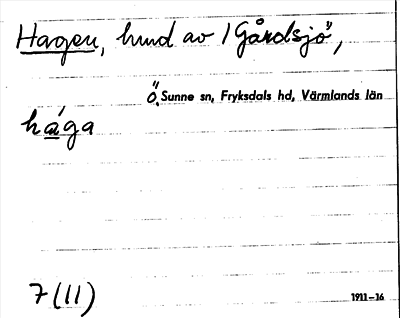 Hagen, hmd av / Gårdsjö,
Ö. Sunne sn, Fryksdals hd, Värmlands län
håga
7 (11)
1911–16